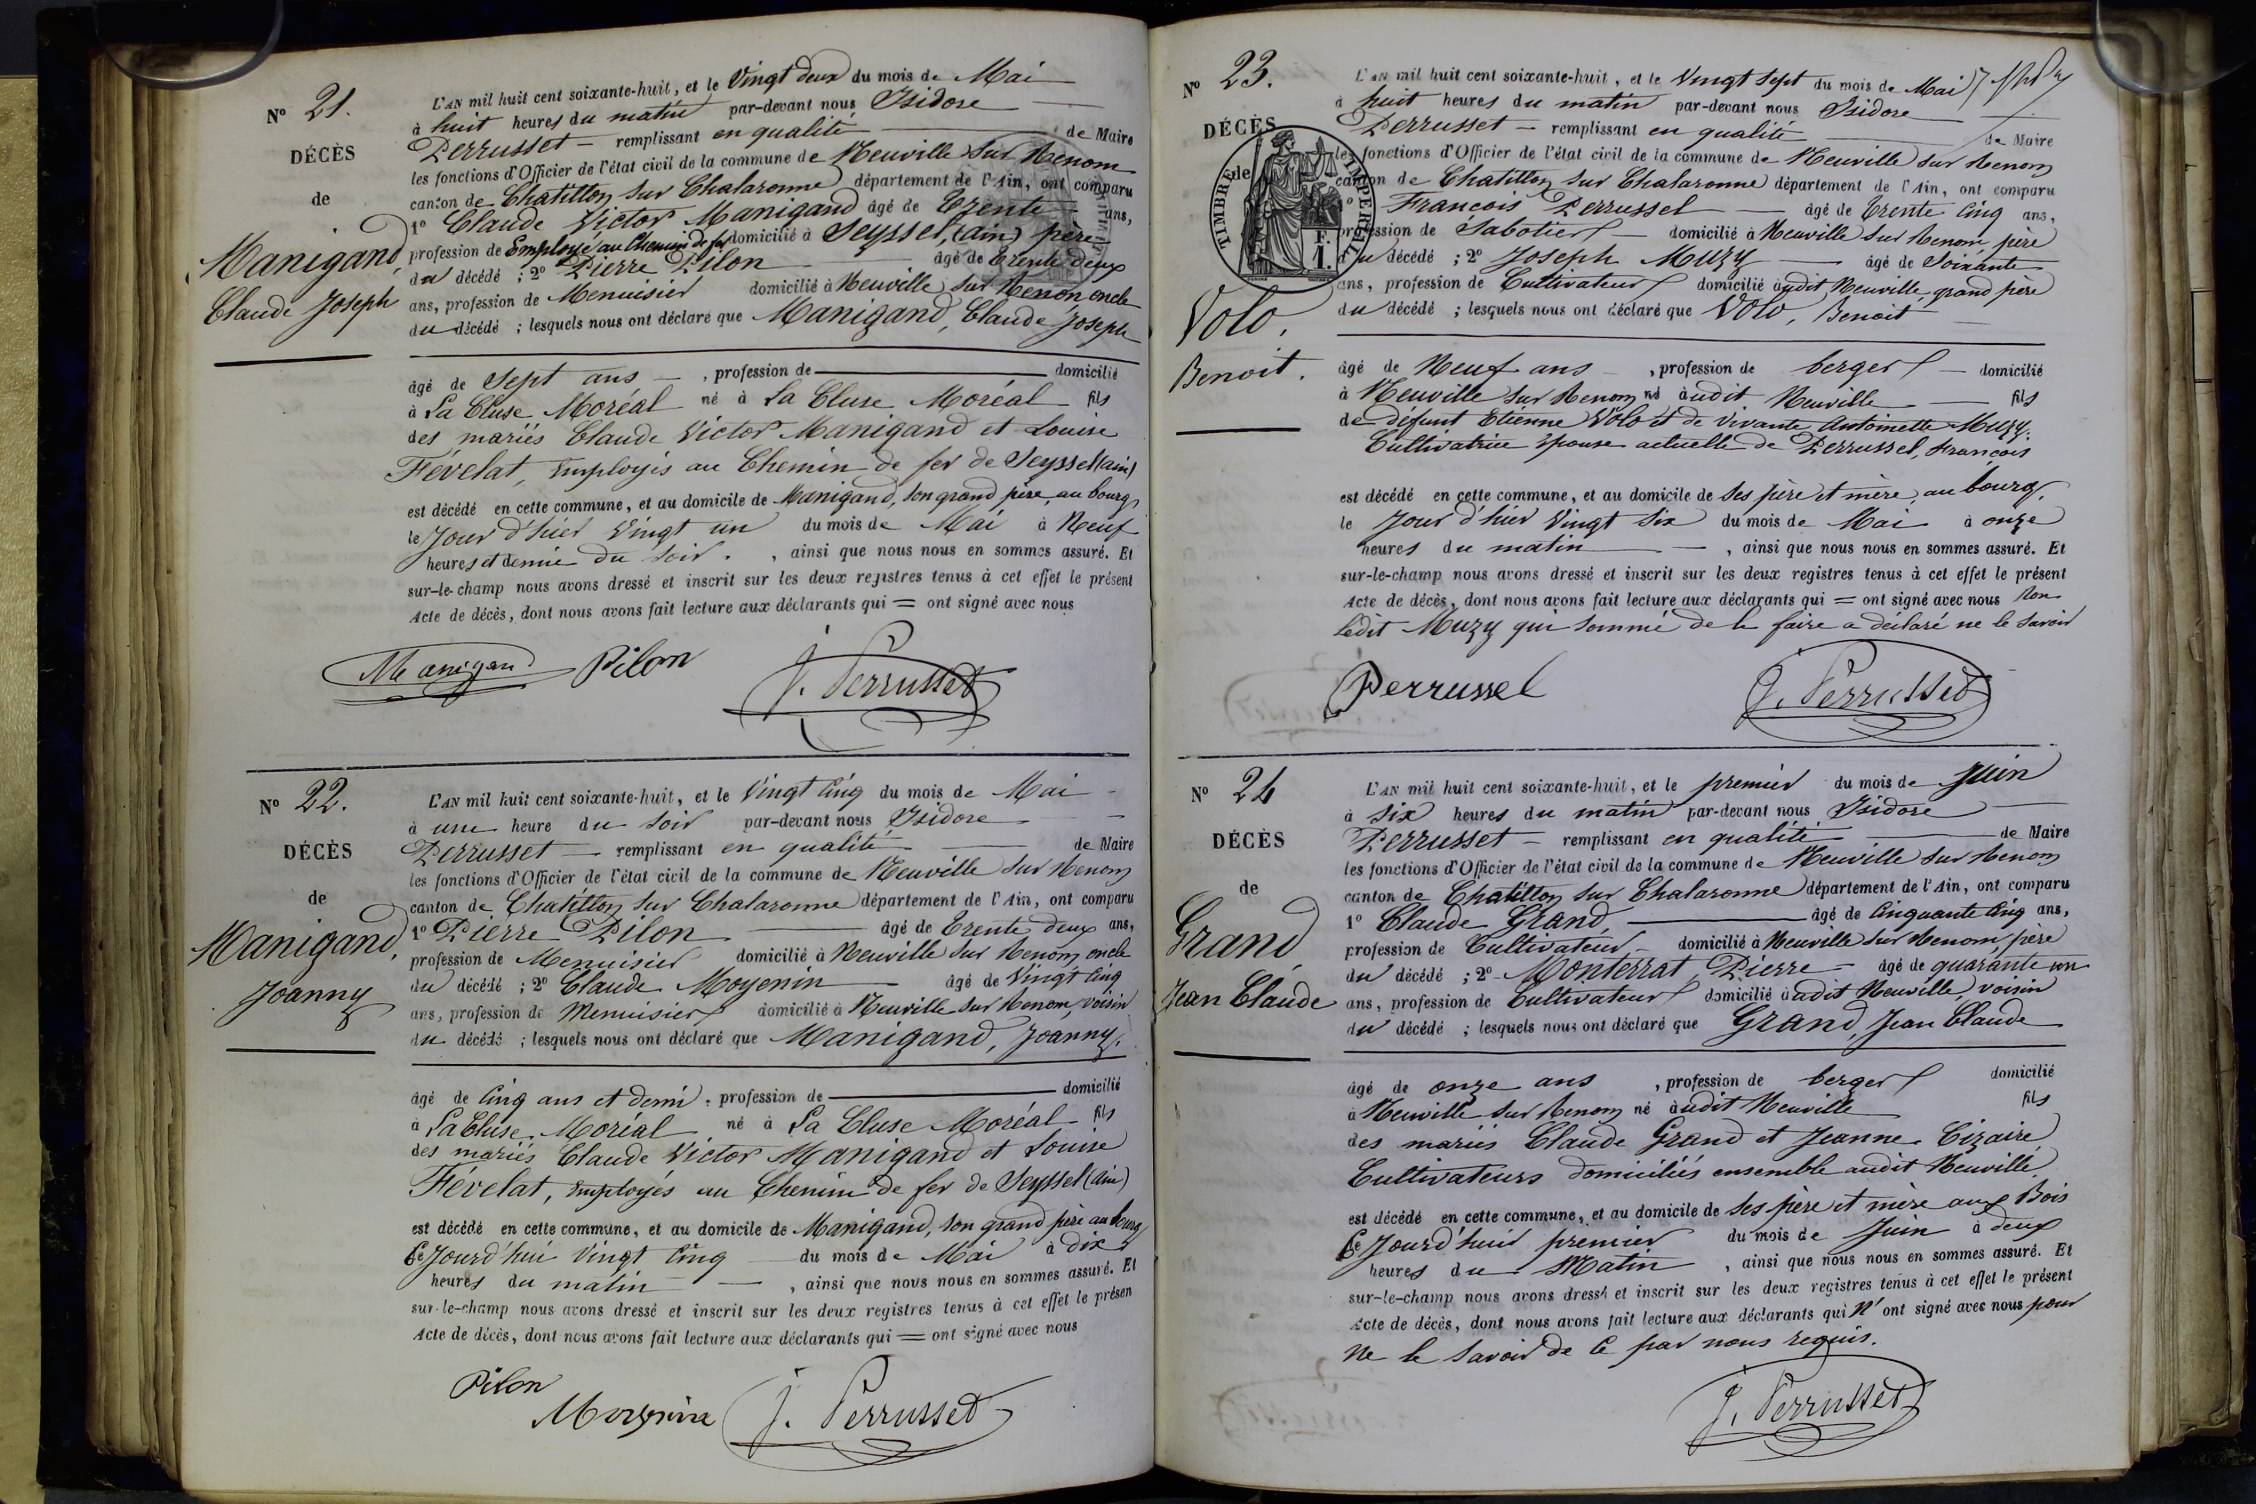 N° 21.
DÉCÈS
de
Manigand,
Claude Joseph
L'AN mil huit cent soixante-huit, et le Vingt deux du mois de Mai
à huit heures du matin par-devant nous Isidore
Perrusset remplissant en qualité de Maire
les fonctions d'Officier de l'état civil de la commune de Neuville sur Renom
canton de Chatillon sur Chalaronne département de l'Ain, ont comparu
1° Claude Victor Manigand âgé de Trente ans,
profession de Employé au Chemin de fer domicilié à Seyssel, (ain) père
du décédé ; 2° Pierre Pilon âgé de Trente deux
ans, profession de Menuisier domicilié à Neuville sur Renon oncle
du décédé ; lesquels nous ont déclaré que Manigand, Claude Joseph
âgé de Sept ans , profession de domicilié
à La Cluse Moréal né à La Cluse Moréal fils
des mariés Claude Victor Manigand et Louise
Févelat, Employés au Chemin de fer de Seyssel (ain)
est décédé en cette commune, et au domicile de Manigand, son grand père, au bourg,
le Jour d'hier Vingt un du mois de Mai à Neuf
heures et demie du soir. , ainsi que nous nous en sommes assuré. Et
sur-le-champ nous avons dressé et inscrit sur les deux registres tenus à cet effet le présent
Acte de décès, dont nous avons fait lecture aux déclarants qui = ont signé avec nous
Manigand Pilon J. Perrusset
N° 22.
DÉCÈS
de
Manigand,
Joanny
L'AN mil huit cent soixante-huit, et le Vingt Cinq du mois de Mai
à une heure du soir par-devant nous Isidore
Perrusset remplissant en qualité de Maire
les fonctions d'Officier de l'état civil de la commune de Neuville sur Renom
canton de Chatillon sur Chalaronne département de l'Ain, ont comparu
1° Pierre Pilon âgé de Trente deux ans,
profession de Menuisier domicilié à Neuville sur Renom oncle
du décédé ; 2° Claude Moyenin âgé de Vingt Cinq
ans, profession de Menuisier domicilié à Neuville sur Renom, voisin
du décédé ; lesquels nous ont déclaré que Manigand, Joanny,
âgé de Cinq ans et demi, profession de domicilié
à La Cluse Moréal né à La Cluse Moréal fils
des mariés Claude Victor Manigand et Louise
Févelat, Employés au Chemin de fer de Seyssel (ain)
est décédé en cette commune, et au domicile de Manigand, son grand père au bourg,
Ce Jourd'hui Vingt Cinq du mois de Mai à dix
heures du matin , ainsi que nous nous en sommes assuré. Et
sur-le-champ nous avons dressé et inscrit sur les deux registres tenus à cet effet le présen
Acte de décès, dont nous avons fait lecture aux déclarants qui = ont signé avec nous
Pilon
J. Perrusset
N° 23.
DÉCÈS
de
TIMBRE IMPERIAL
F.
1.
Volo,
Benoit.
L'AN mil huit cent soixante-huit, et le Vingt Sept du mois de Mai
à huit heures du matin par-devant nous Isidore
Perrusset remplissant en qualité de Maire
les fonctions d'Officier de l'état civil de la commune de Neuville sur Renom
canton de Chatillon sur Chalaronne département de l'Ain, ont comparu
François Perrussel âgé de Trente Cinq ans,
profession de Sabotier domicilié à Neuville sur Renom, père
du décédé ; 2° Joseph Muzy âgé de Soixante
ans, profession de Cultivateur domicilié audit Neuville, grand père
du décédé ; lesquels nous ont déclaré que Volo, Benoit
âgé de Neuf ans , profession de berger domicilié
à Neuville sur Renom né audit Neuville fils
de défunt Etienne Volo et de vivante Antoinette Muzy.
Cultivatrice épouse actuelle de Perrussel, François
est décédé en cette commune, et au domicile de ses père et mère, au bourg,
le Jour d'hier Vingt Six du mois de Mai à onze
heures du matin , ainsi que nous nous en sommes assuré. Et
sur-le-champ nous avons dressé et inscrit sur les deux registres tenus à cet effet le présent
Acte de décès, dont nous avons fait lecture aux déclarants qui = ont signé avec nous Non
ledit Muzy qui sommé de le faire a déclaré ne le savoir
Perrussel J. Perrusset
N° 24
DÉCÈS
de
Grand
Jean Claude
L'AN mil huit cent soixante-huit, et le premier du mois de Juin
à six heures du matin par-devant nous Isidore
Perrusset remplissant en qualité de Maire
les fonctions d'Officier de l'état civil de la commune de Neuville sur Renom
canton de Chatillon sur Chalaronne département de l'Ain, ont comparu
1° Claude Grand, âgé de Cinquante Cinq ans,
profession de Cultivateur domicilié à Neuville sur Renom père
du décédé ; 2° Monterrat, Pierre âgé de quarante un
ans, profession de Cultivateur domicilié audit Neuville, voisin
du décédé ; lesquels nous ont déclaré que Grand, Jean Claude
âgé de onze ans , profession de berger domicilié
à Neuville sur Renom né audit Neuville fils
des mariés Claude Grand et Jeanne Cizaire
Cultivateurs domiciliés ensemble audit Neuville
est décédé en cette commune, et au domicile de ses père et mère aux Bois
Ce Jourd'hui premier du mois de Juin à deux
heures du Matin , ainsi que nous nous en sommes assuré. Et
sur-le-champ nous avons dressé et inscrit sur les deux registres tenus à cet effet le présent
Acte de décès, dont nous avons fait lecture aux déclarants qui N' ont signé avec nous pour
ne le savoir de ce par nous requis.
J. Perrusset